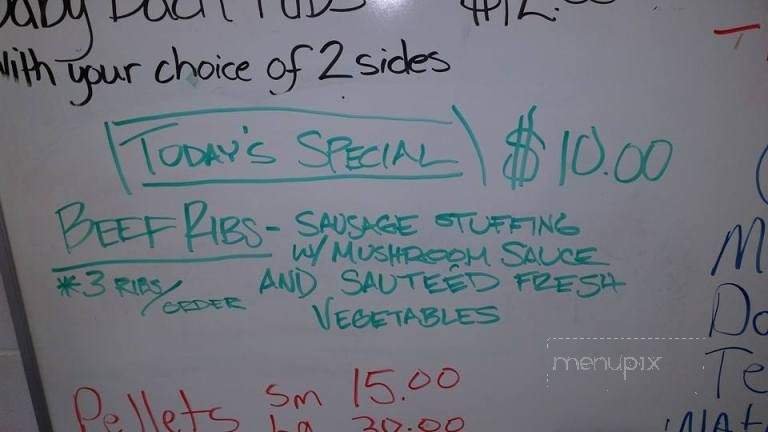 Baby Back Ribs $12.00
With your choice of 2 sides
TODAY'S SPECIAL $10.00
BEEF RIBS - SAUSAGE STUFFING
W/ MUSHROOM SAUCE
*3 RIBS/ORDER AND SAUTEÉD FRESH
VEGETABLES
menupix
Pellets sm 15.00
Lg 30.00